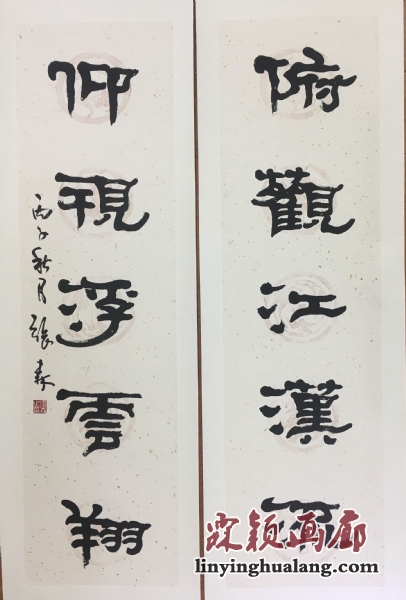 俯觀江漢
仰視浮雲翔
丙子秋月張森
霖颖画廊
linyinghualang.com